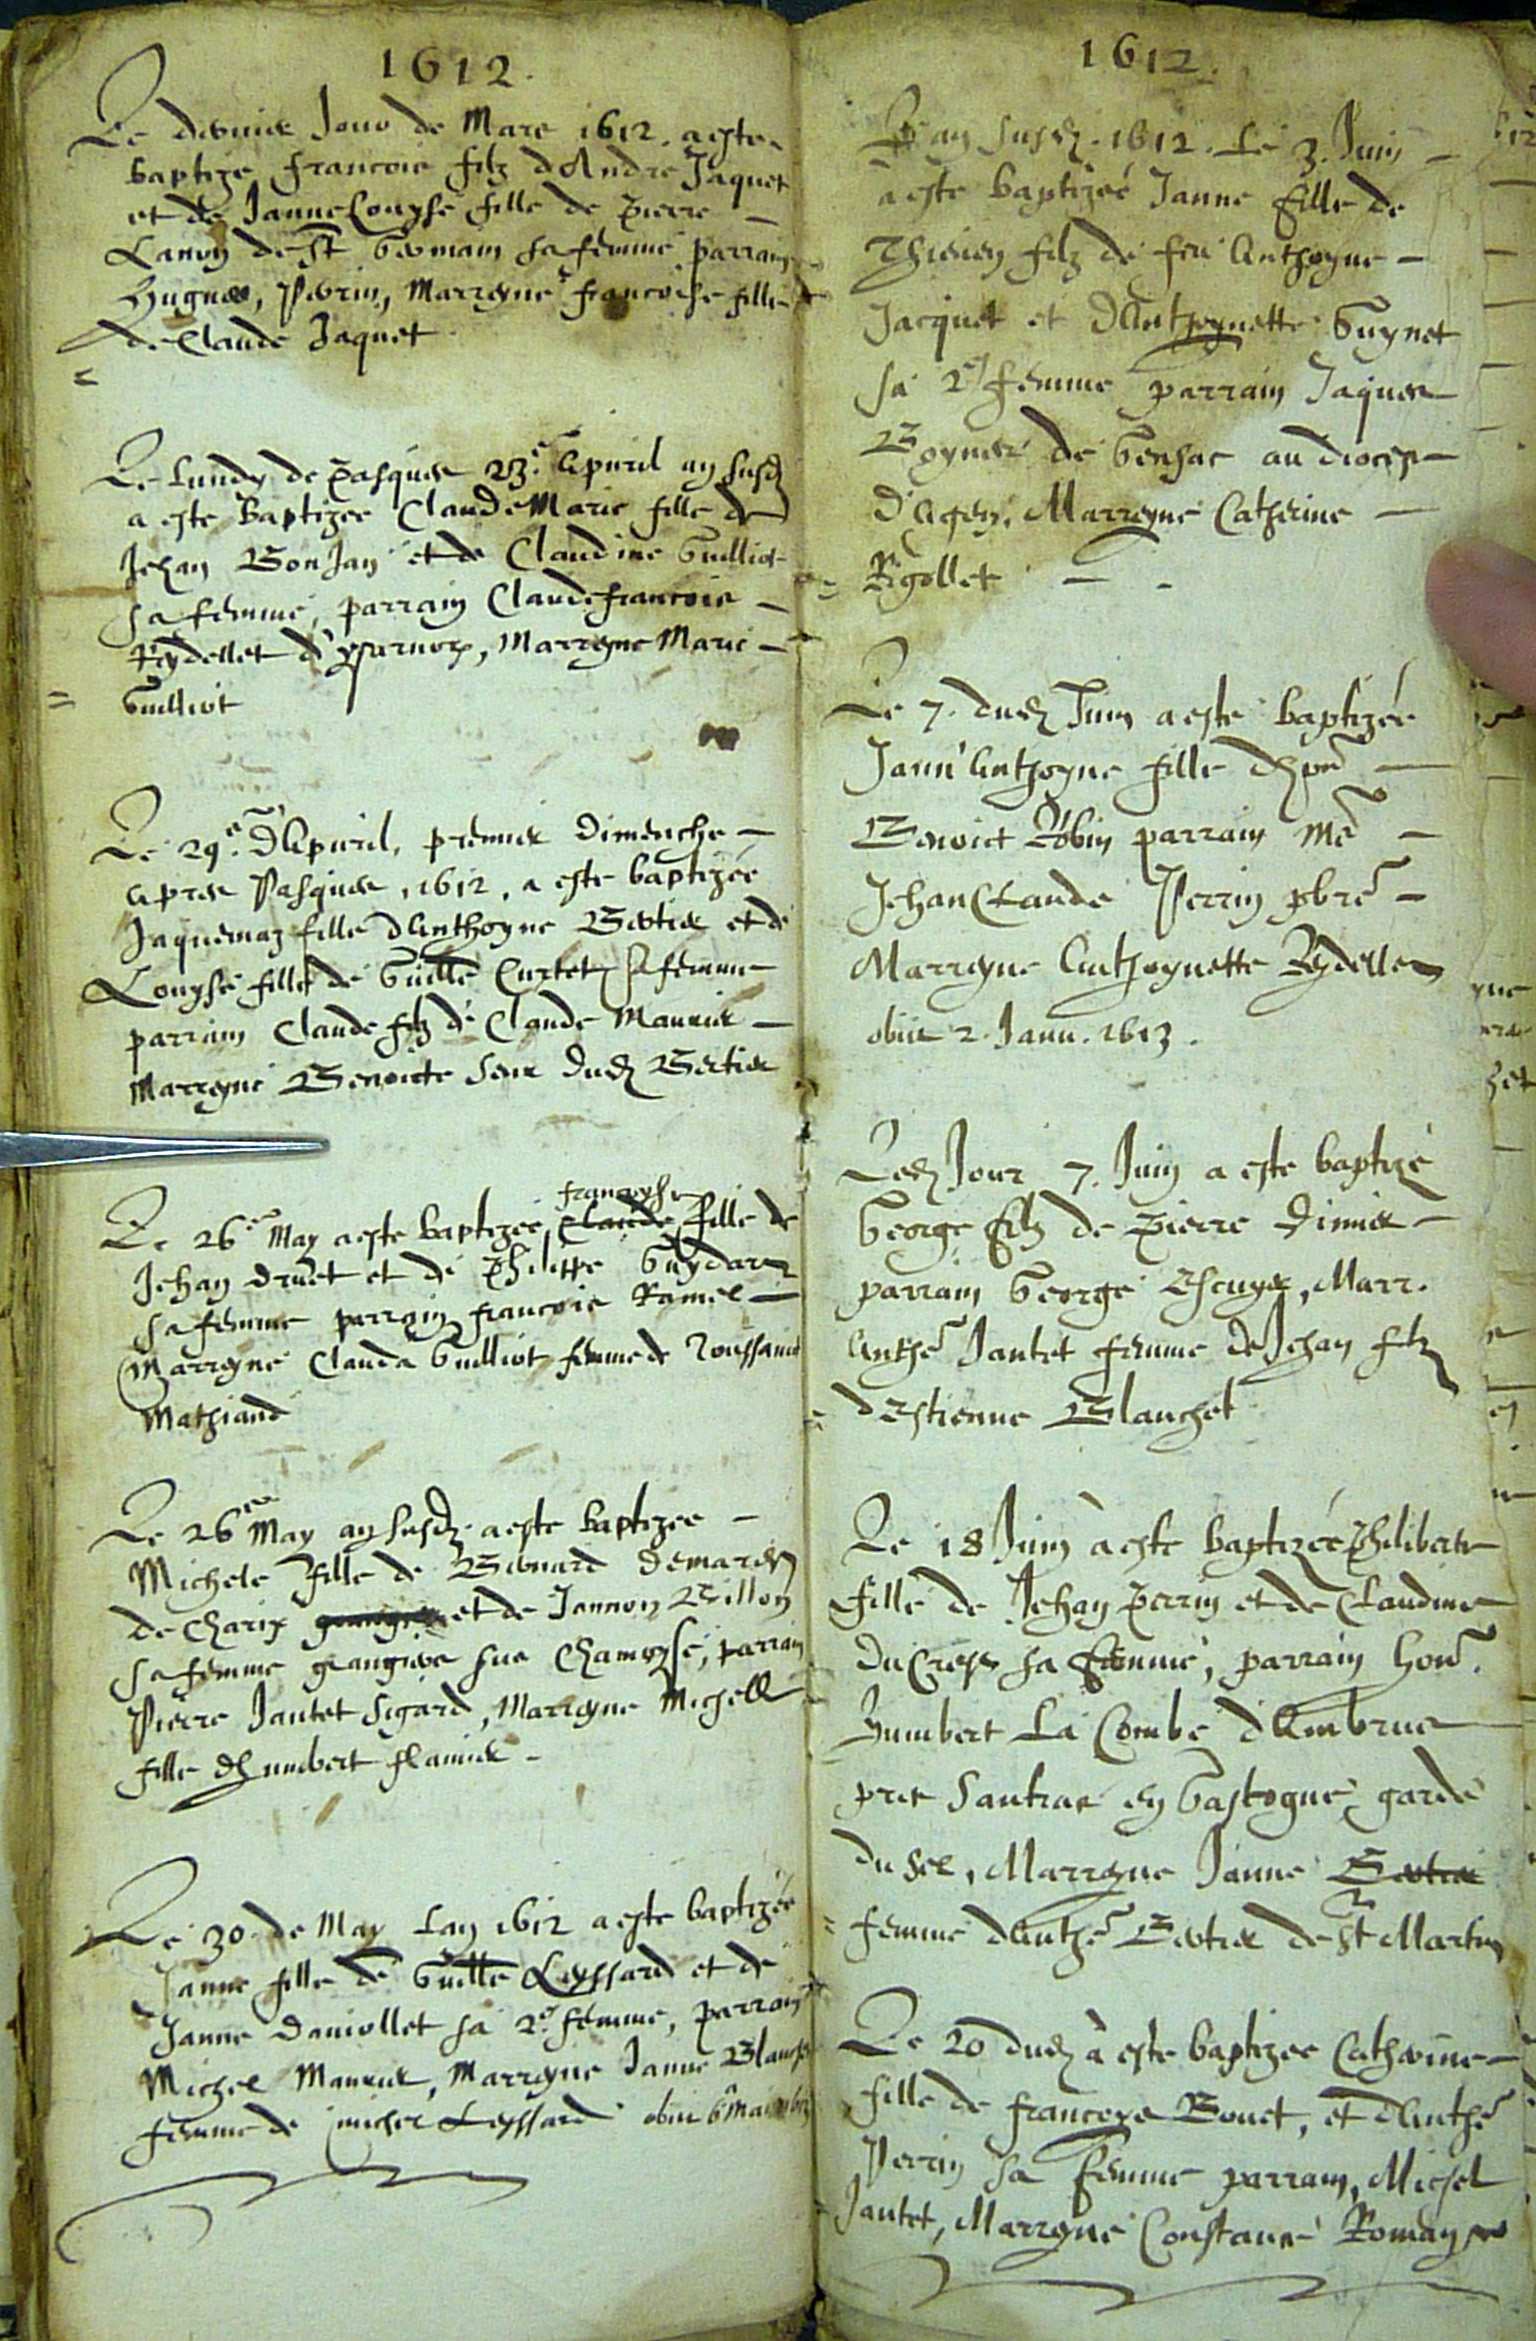 1612.
Le dernier Jour de Mars 1612. a este
baptize francois filz d'Andre Jaquet
et de Janne Louyse fille de Pierre
Lanon de St Germain sa femme parrain
Hugues, Perrin, Marreyne francoise fille
de Claude Jaquet
Le Lundy de Pasques 23.e Apuril an susd
a este Baptizee Claude Marie fille de
Jehan Bon Jan et de Claudine Guilliot
sa femme, parrain Claude francois
Reydellet d'Ysernore, Marreyne Marie
Guilliot
Le 29.e d'Apuril, premier Dimenche
Apres Pasques, 1612, a este baptizée
Jaquemaz fille d'Anthoyne Bertier et de
Louyse fille de Guille Curtet sa femme
parrain Claude filz de Claude Maurier
Marreyne Benoicte seur dud Bertier
francoyse
Le 26.e May a este baptizée Claude fille de
Jehan Druet et de Philippe Guydard
sa femme parrain francois Ramel
Marreyne Clauda Guilliot femme de Toussainct
Mathiand
Le 26 May an susd. a este baptizee
Michele fille de Bernard Demaren
de Charix et de Jannon Billon
sa femme grangiers sus Chamoyse, parrain
Pierre Jantet Sigard, Marreyne Michelle
fille d'humbert flamier
Le 30. de May Lan 1612 a este baptizée
Janne fille de Guille Leyssard et de
Janne Daniollet sa 2.e femme, parrain
Michel Maurier, Marreyne Janne Blanchet
femme de Michel Leyssard obiit
1612.
L'an susd. 1612. Le 3. Juin
a este baptizée Janne fille de
Thivien filz de feu Anthoyne
Jacquet et d'Anthoynette Guynet
sa 2e femme parrain Jaques
Boyner de Gensac au diocese
d'Agen, Marreyne Catherine
Rigollet
Le 7. dud Juin a este baptizée
Jann'Anthoyne fille d'h pte
Benoict Robin parrain Me
Jehan Claude Perrin pbre
Marreyne Anthoynette Reydellet
obiit 2. Janu. 1613.
Led Jour 7. Juin a este baptizé
George filz de Pierre Dinier
parrain George Escuyer, Marr.
Anthe Jantet femme de Jehan filz
d'Estienne Blanchet
Le 18 Juin a este baptizée Philiberte
fille de Jehan Perrin et de Claudine
Du Crest sa femme, parrain hon.
Humbert La Combe d'Ambrus
pres Santrac en Gascogne garde
du sel, Marreyne Janne Bertier
femme d'Anthe Bertier de St Martin
Le 20 dud a este baptizee Catherine
fille de francoys Bonet, et d'Anthe
Perrin sa femme parrain, Michel
Jantet, Marreyne Constance Roman